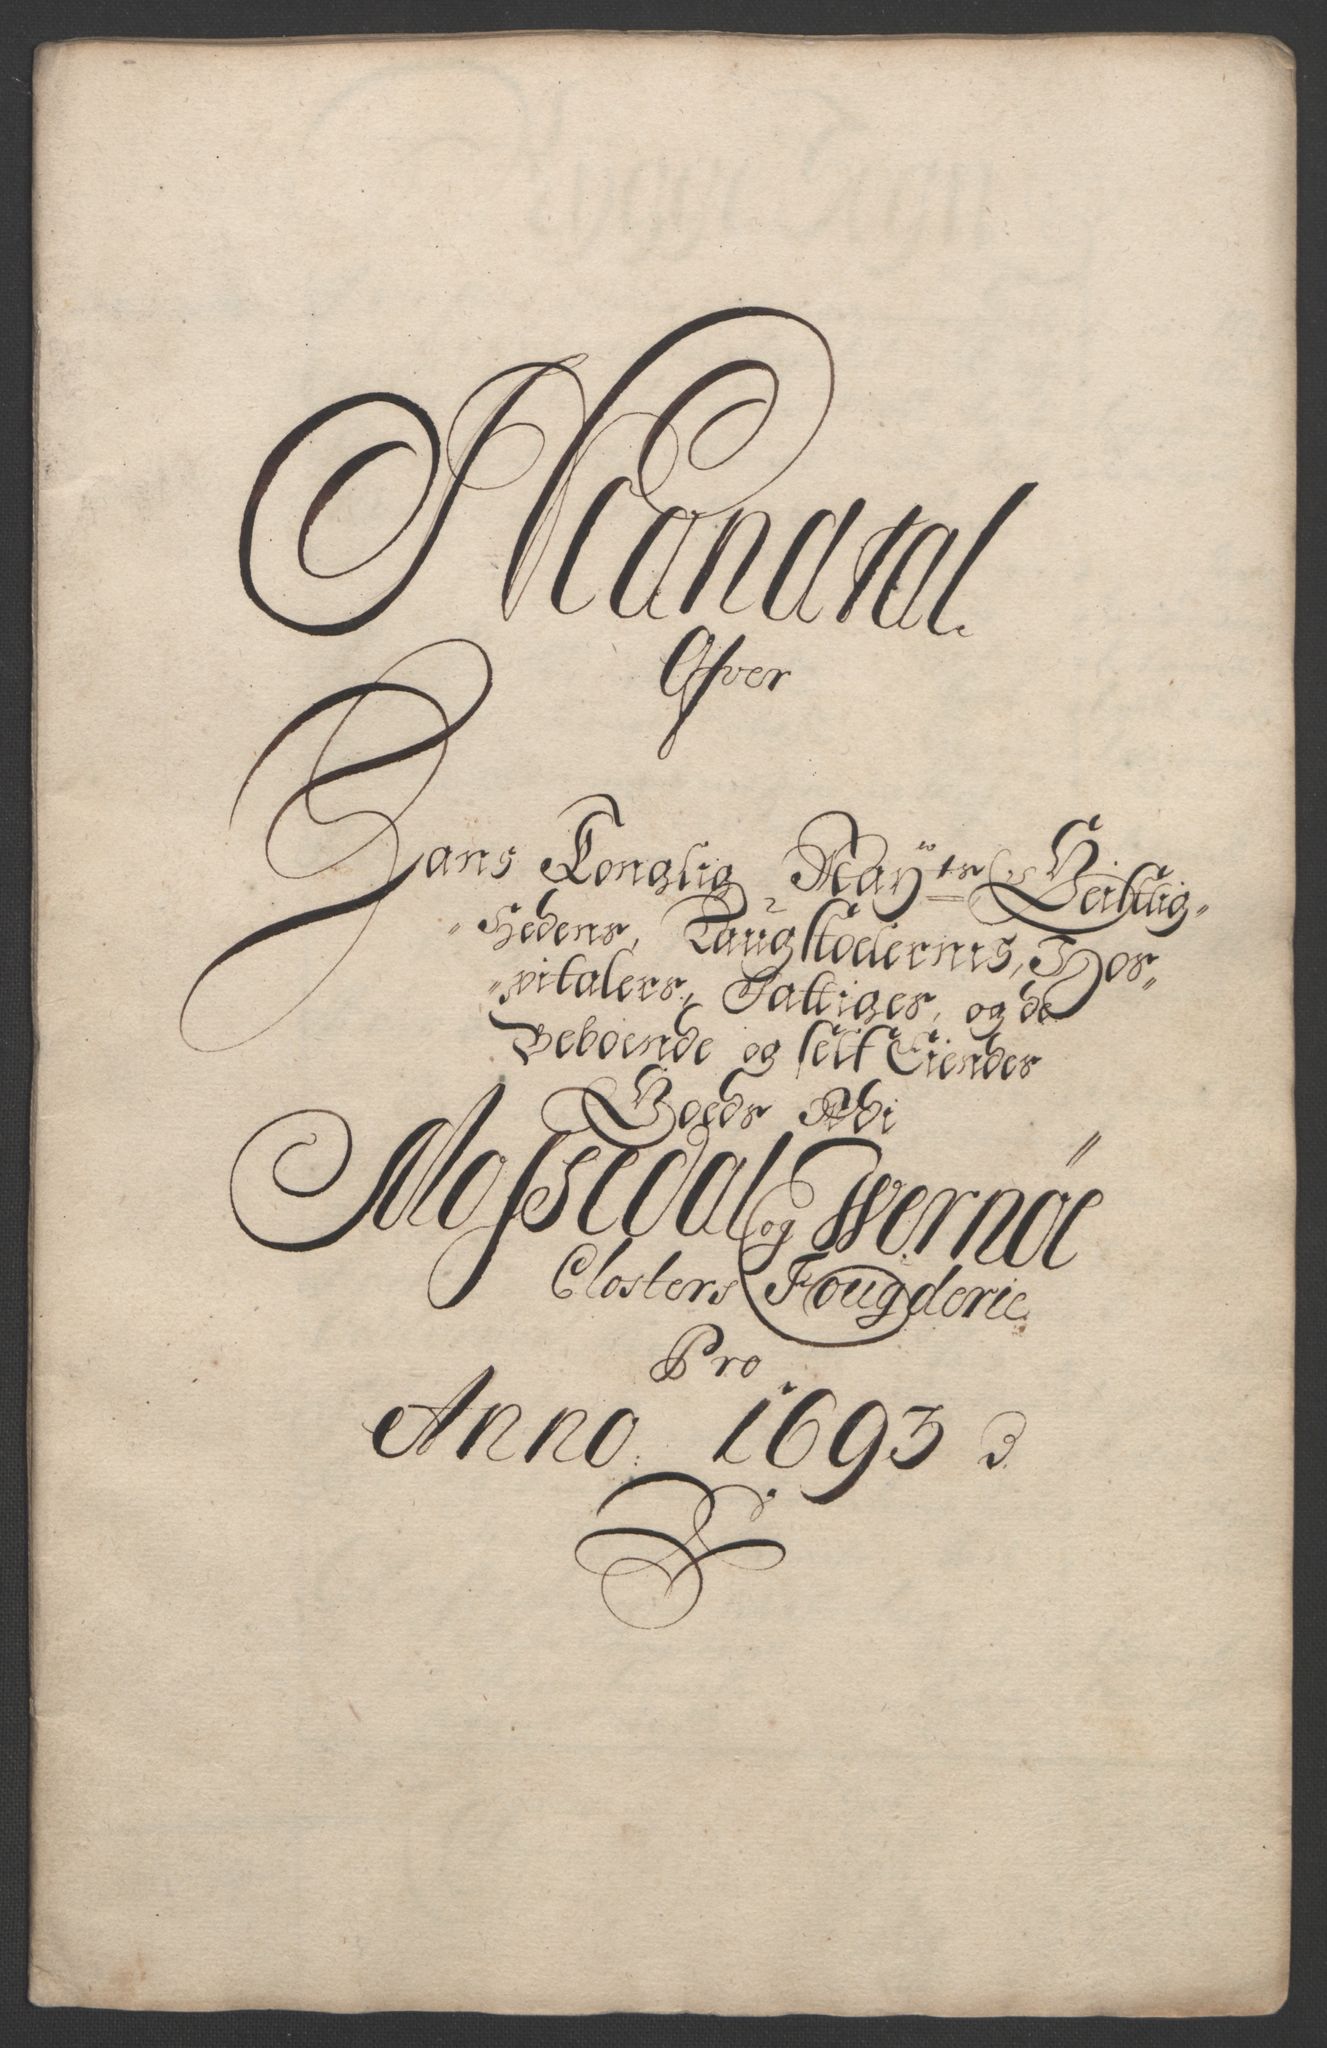 Mandtal
Ofver
Hans Konglig May:ts Geistlig-
hedens, Laugstolernis, Hos-
pitalers, Fattiges, og de
Beboende og self Eiendes
Goeds Udi
Mossedal og Wernøe
Closters Fougderie
Pro
Anno 1693